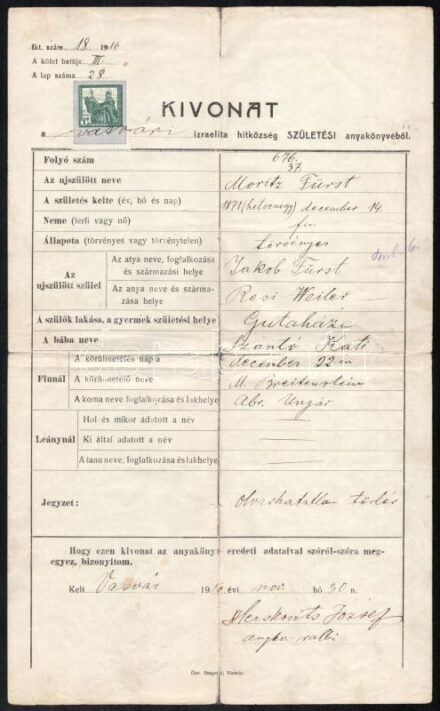 Ikt. szám 18 1916
A kötet betűje III.
A lap száma 28
KIVONAT
a vasvári izraelita hitközség SZÜLETÉSI anyakönyvéből.
Folyó szám 676. 37.
Az ujszülött neve Moritz Fürst
A születés kelte (év, hó és nap) 1871 (hetvenegy) december 14.
Neme (férfi vagy nő) fiu
Állapota (törvényes vagy törvénytelen) törvényes
Az ujszülött szülei
Az atya neve, foglalkozása és származási helye Jakob Fürst
Az anya neve és származása helye Rosi Weiler
A szülők lakása, a gyermek születési helye Gutaházi
A bába neve Szántó Kati
Fiunál
A körülmetélés napja december 22 én
A körülmetélő neve M. Breitenstein
A koma neve foglalkozása és lakhelye Abr. Ungár
Leánynál
Hol és mikor adatott a név
Ki által adatott a név
A tanu neve, foglalkozása és lakhelye
Jegyzet: olvashatatlan törlés
Hogy ezen kivonat az anyakönyv eredeti adataival szóról-szóra megegyez, bizonyitom.
Kelt Vasvár 1916 évi nov. hó 30 n.
Herskovits József
anyakv. rabbi